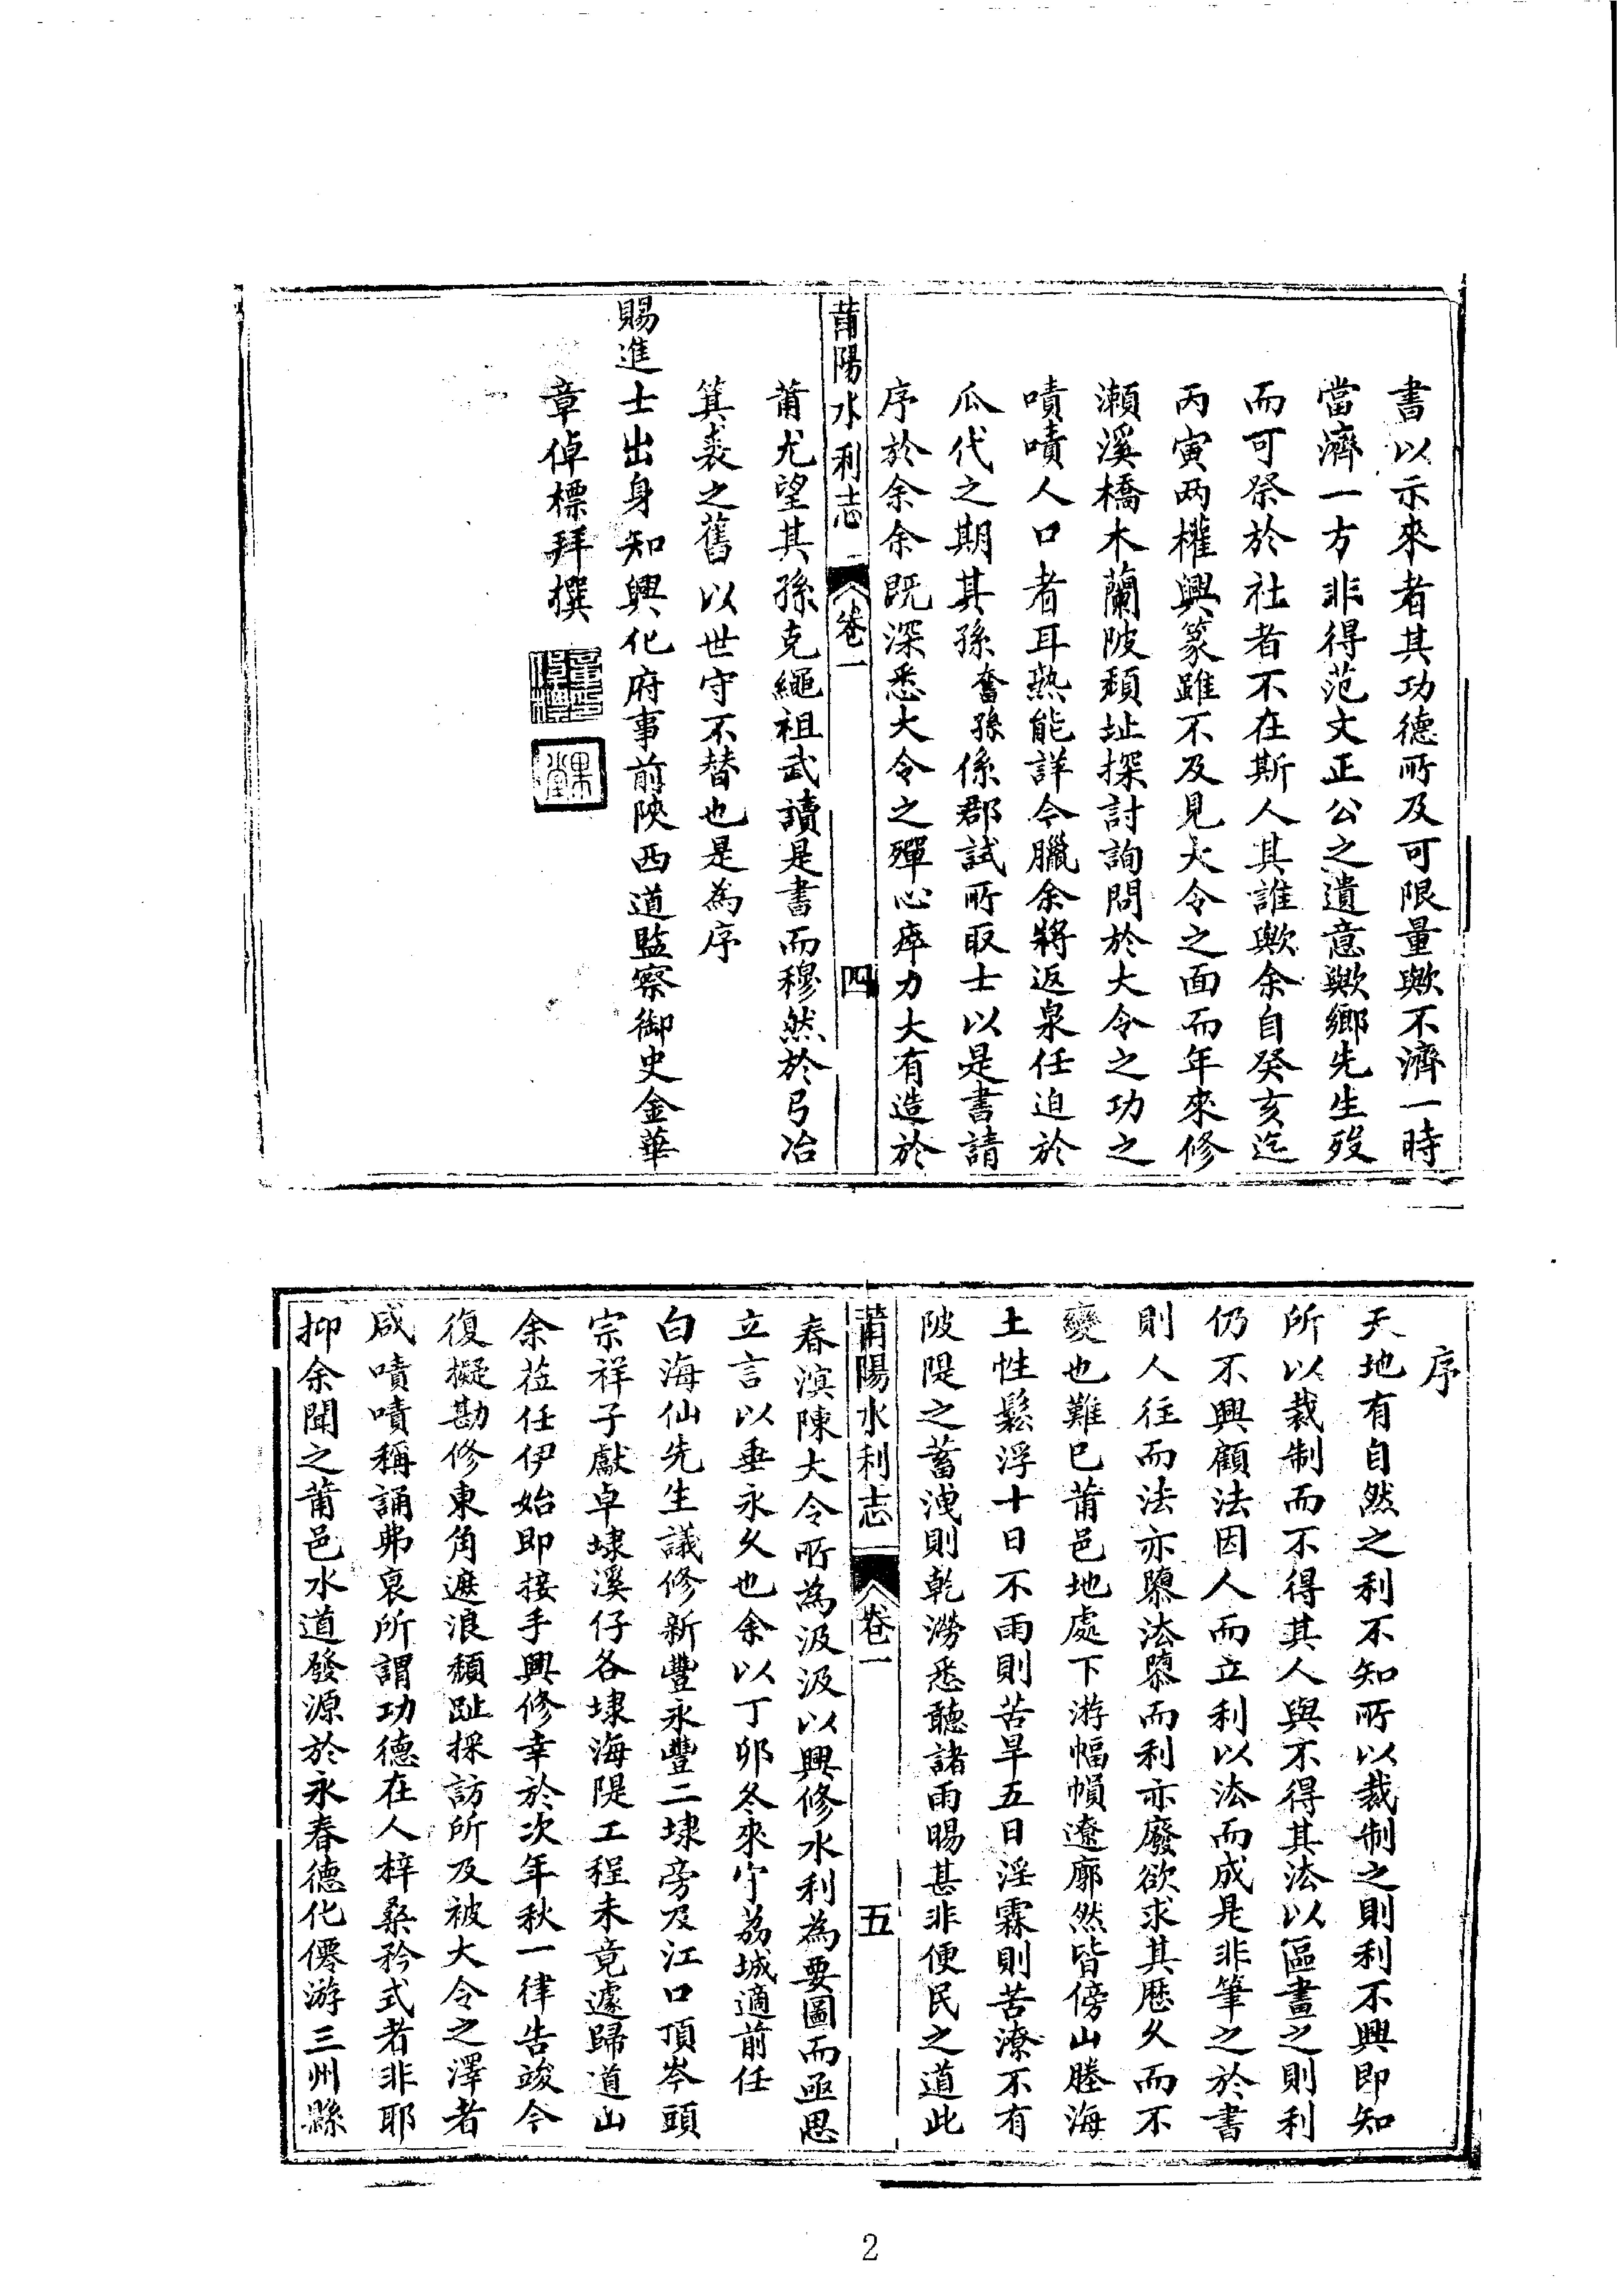 書以示來者其功德所及可限量歟不濟一時
當濟一方非得范文正公之遺意歟鄉先生歿
而可祭於社者不在斯人其誰歟余自癸亥迄
丙寅两權興篆雖不及見大令之面而年來修
瀨溪橋木蘭陂頹址探討詢問於大令之功之
嘖嘖人口者耳熟能詳今臘余將返泉任迫於
瓜代之期其孫奮孫係郡試所取士以是書請
序於余余既深悉大令之殫心瘁力大有造於
莆陽水利志 卷一 四
莆尤望其孫克繩祖武讀是書而穆然於弓冶
箕裘之舊以世守不替也是為序
賜進士出身知興化府事前陝西道監察御史金華
章倬標拜撰
序
天地有自然之利不知所以裁制之則利不興即知
所以裁制而不得其人與不得其法以區畫之則利
仍不興顧法因人而立利以法而成是非筆之於書
則人往而法亦隳法隳而利亦廢欲求其歷久而不
變也難已莆邑地處下游幅幀遼廓然皆傍山塍海
土性鬆浮十日不雨則苦旱五日淫霖則苦潦不有
陂隄之蓄洩則乾澇悉聽諸雨暘甚非便民之道此
莆陽水利志 卷一 五
春濱陳大令所為汲汲以興修水利為要圖而亟思
立言以垂永久也余以丁卯冬來守荔城適前任
白海仙先生議修新豐永豐二埭旁及江口頂岑頭
宗祥子獻卓埭溪仔各埭海隄工程未竟遽歸道山
余莅任伊始即接手興修幸於次年秋一律告竣今
復擬勘修東角遮浪頹趾採訪所及被大令之澤者
咸嘖嘖稱誦弗衰所謂功德在人梓桑矜式者非耶
抑余聞之莆邑水道發源於永春德化僊游三州縣
2